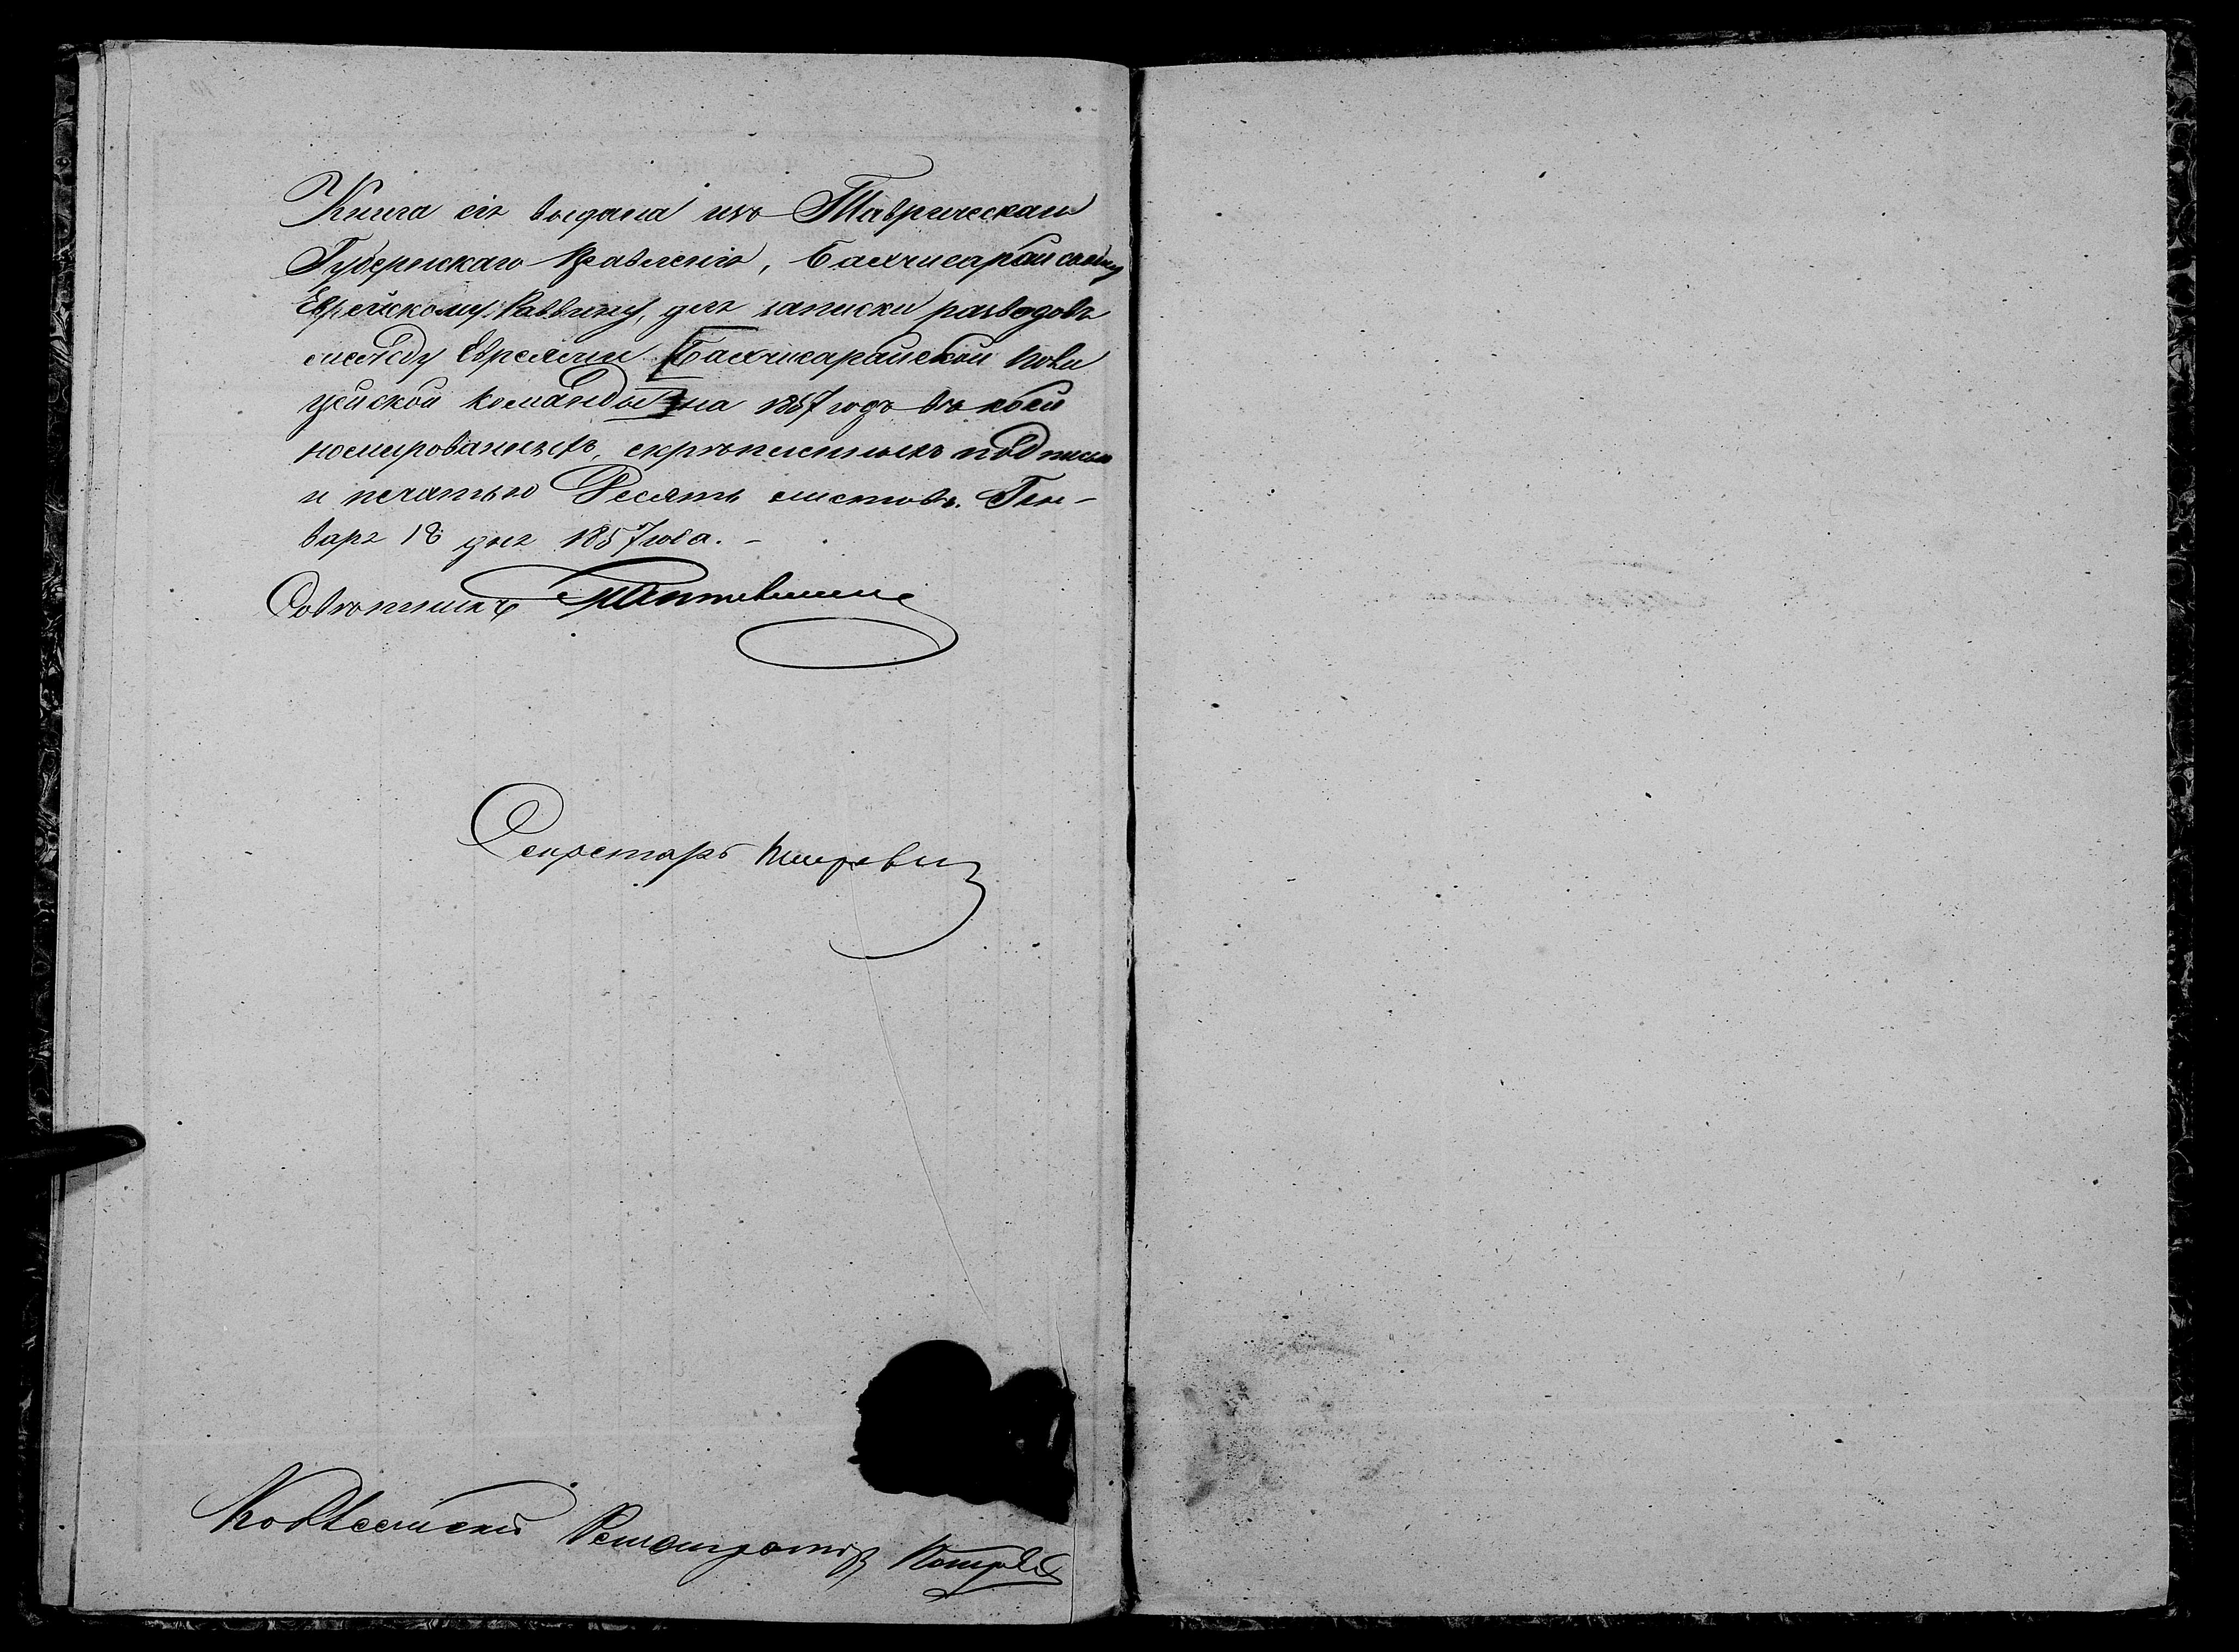 Книга сія выдана изъ Таврическаго
Губернскаго Правленія, Бахчисарайскому
Еврейскому Раввину, для записки разводовъ
между Евреями [Бахчисарайской Поли
цейской команды] на 1857 годъ въ коей
номированныхъ, скрѣпленныхъ подписью
и печатью Десять листовъ. Ген-
варя 18 дня 1857 года. -
Совѣтникъ
Секретарь
Коллежскій Регистраторъ